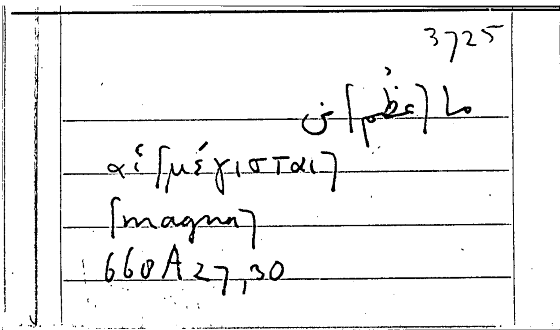 3725
ما [عظُم]
αἱ [μέγισται]
[magna]
660A27,30